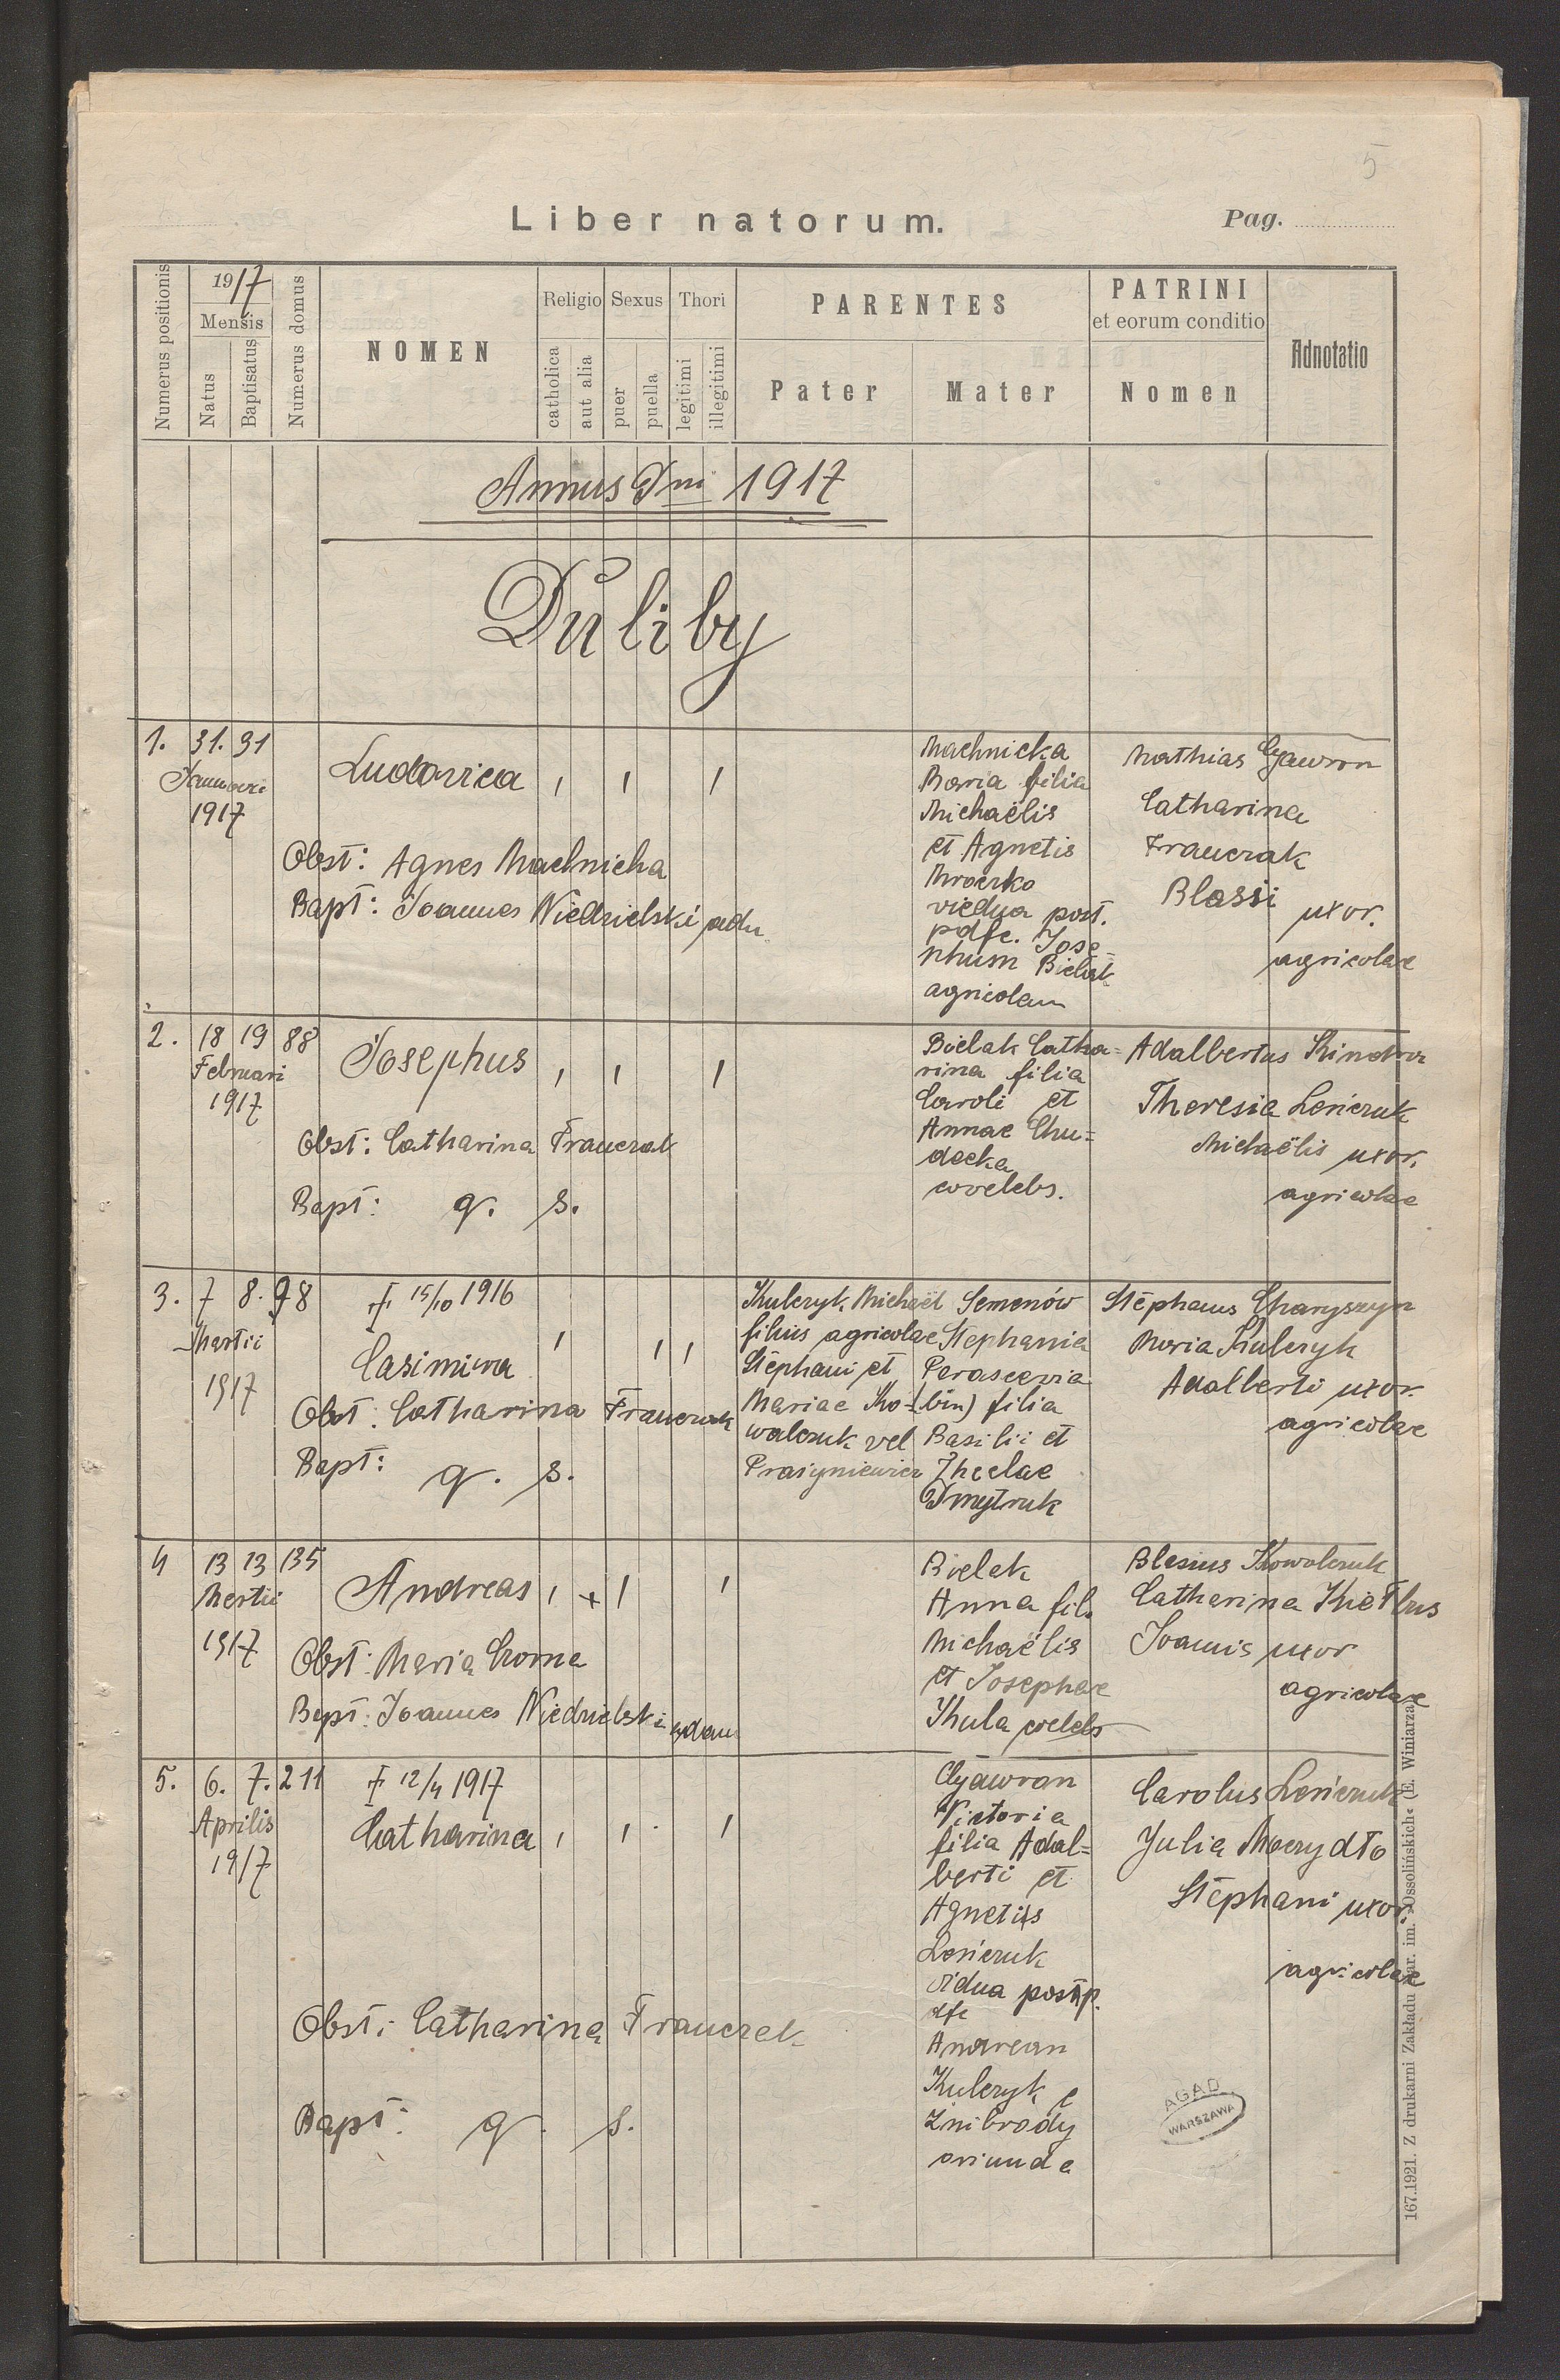 5
Liber natorum.
Pag.
Numerus positionis
1917
Mensis
Natus
Baptisatus
Numerus domus
NOMEN
Religio
catholica
aut alia
Sexus
puer
puella
Thori
legitimi
illegitimi
PARENTES
Pater
Mater
PATRINI
et eorum conditio
Nomen
Adnotatio
Annus Dni 1917
Duliby
1. 31. 31
Januari
1917
Ludovica
Obst: Agnes Machnicka
Bapt: Joannes Niedzielski adm
Machnicka
Maria filia
Michaëlis
et Agnetis
Mroczko
viedua post.
pdfc. Jose=
phum Bielak
agricolam
Mathias Gawron
Catharina
Franczak
Blassi
uxor.
agricolae
2. 18 19 88
Februari
1917
Josephus
Obst: Catharina Franczak
Bapt: q. s.
Bielak Catha=
rina filia
Caroli et
Annae Chu=
decka
coelebs.
Adalbertus Kindra
Theresia Lesiczuk
Michaëlis uxor.
agricolae
3. 7 8. 98
Martii
1917
† 15/10 1916
Casimira
Obst: Catharina Franczak
Bapt: q. s.
Kulczyk Michaël
filius agricolae
Stephani et
Mariae Ko=
walczuk vel
Prasyniewicz
Semenów
Stephania
Parascevia
(bin) filia
Basilii et
Theclae
Dmytruk
Stephanus Charyszyn
Maria Kulczyk
Adalberti uxor.
agricolae
4 13 13 135
Martii
1917
Andreas
Obst: Maria Croma
Bapt: Joannes Niedzielski adm
Bielak
Anna fil.
Michaëlis
et Josephae
Kula coelebs
Blasius Kowalczuk
Catharina Kiełbus
Joannis uxor
agricolae
5. 6. 7. 211
Aprilis
1917
† 12/4 1917
Catharina
Obst: Catharina Franczak
Bapt: q. s.
Gawron
Victoria
filia Adal=
berti et
Agnetis
Lesiczuk
vidua post p.
dfc
Andream
Kulczyk e
Znibrody
oriunda
Carolus Lesiczuk
Julia Moczydło
Stephani uxor.
agricolae
AGAD
WARSZAWA
167.1921. Z drukarni Zakładu nar. im. »Ossolińskich« (E. Winiarza)